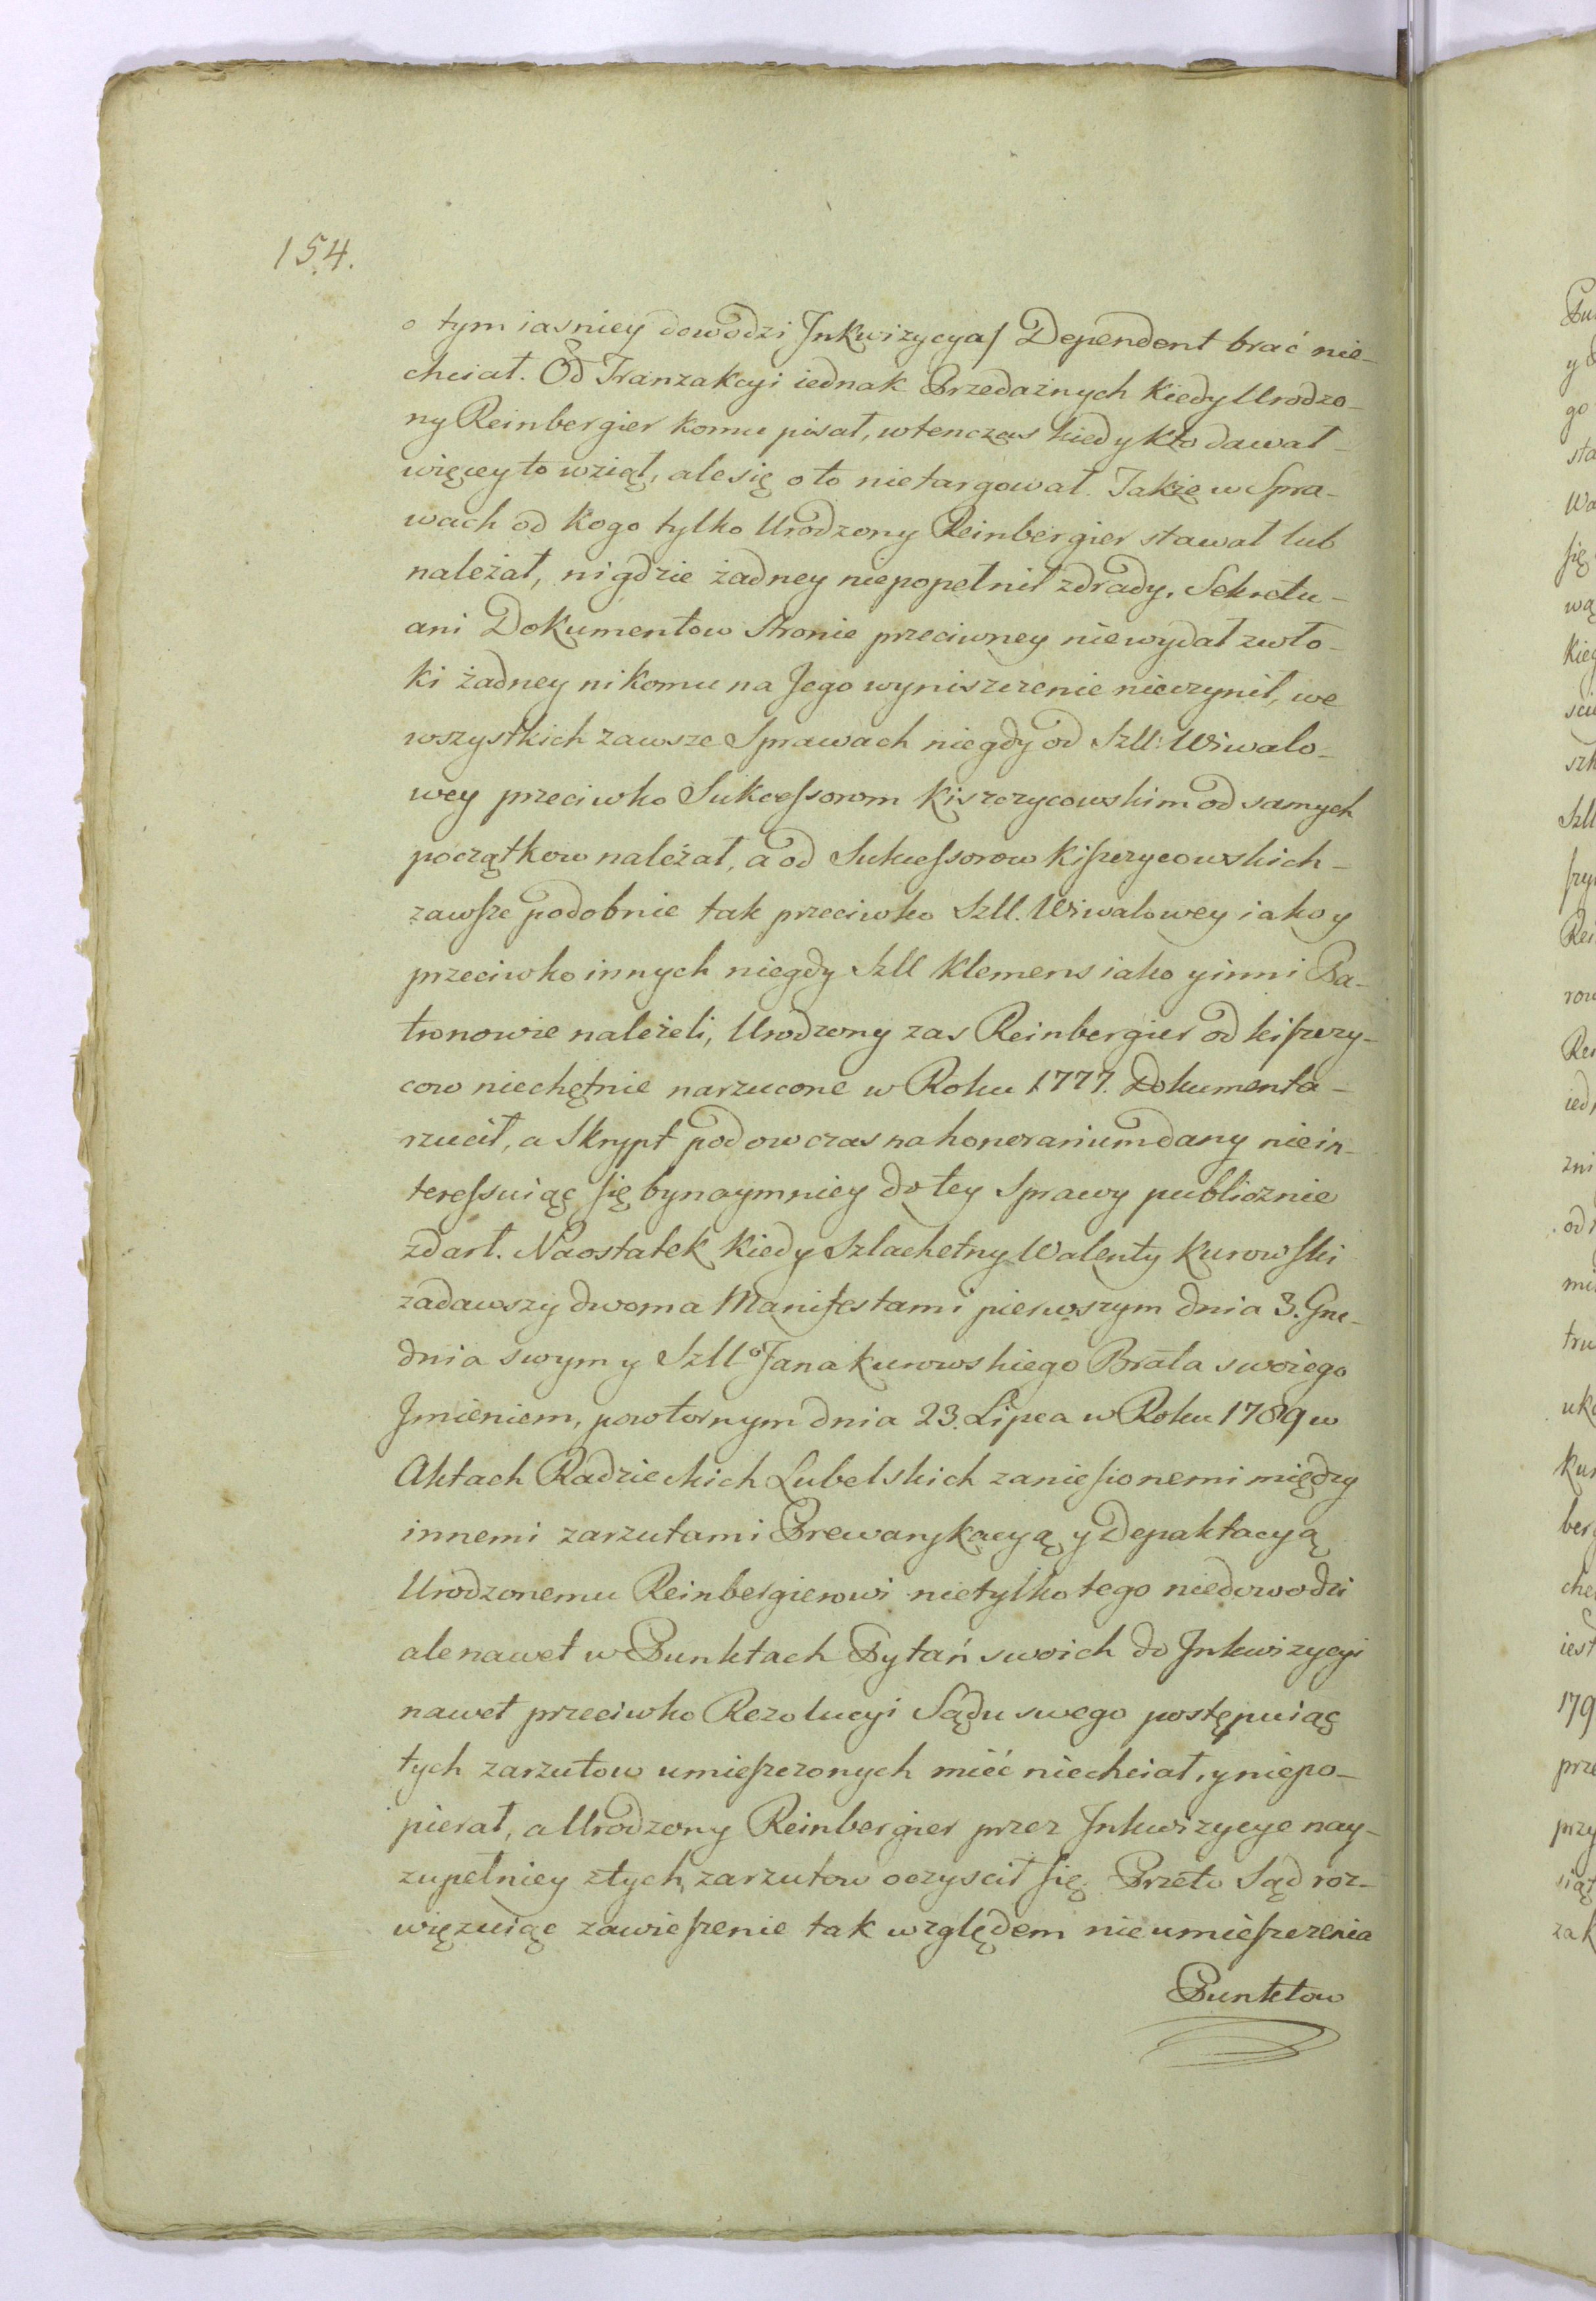 154.
o tym iasniey dowodzi Jnkwizycya/ Dependent brać nie-
chciał. Od Tranzakcyi iednak Przedażnych kiedy Urodzo-
ny Reinbergier komu pisał, wtenczas kiedy kto dawał -
więcey to wziął, ale się o to nietargował. Także w Spra-
wach od kogo tylko Urodzony Reinbergier stawał lub
należał, nigdzie żadney niepopełnił zdrady, Sekretu -
ani Dokumentow stronie przeciwney niewydał zwło-
ki żadney nikomu na Jego wyniszczenie nieczynił, we
wszystkich zawsze Sprawach niegdy od Szll: Wiwalo-
wey przeciwko Sukcessorom Kiszczycowskim od samych
początkow należał, a od Sukcessorow Kiszczycowskich -
zawsze podobnie tak przeciwko Szll. Wiwalowey iako y
przeciwko innych niegdy Szll Klemens iako y inni Pa-
tronowie należeli, Urodzony zas Reinbergier od Kiszczy-
cow niechętnie narzucone w Roku 1777. Dokumenta -
rzucił, a Skrypt pod ow czas na honorarium dany niein-
teressuiąc się bynaymniey do tey Sprawy publicznie
zdarł. Naostatek kiedy Szlachetny Walenty Kurowski
zadawszy dwoma Manifestami pierwszym dnia 3. Gru-
dnia swym y Szllo Jana Kurowskiego Brata swoiego
Jmieniem, powtornym dnia 23. Lipca w Roku 1789 w
Aktach Radzieckich Lubelskich zaniesionemi między
innemi zarzutami Prewarykacyą y Depaktacyą
Urodzonemu Reinbergierowi nietylko tego niedowodzi
ale nawet w Punktach Pytań swoich do Jnkwizycyi
nawet przeciwko Rezolucyi Sądu swego postępuiąc
tych zarzutow umieszczonych mieć niechciał, y niepo-
pierał, a Urodzony Reinbergier przez Jnkwizycye nay-
zupełniey z tych zarzutow oczyscił się. Przeto Sąd roz-
więzuiąc zawieszenie tak względem nieumieszczenia
Punktow